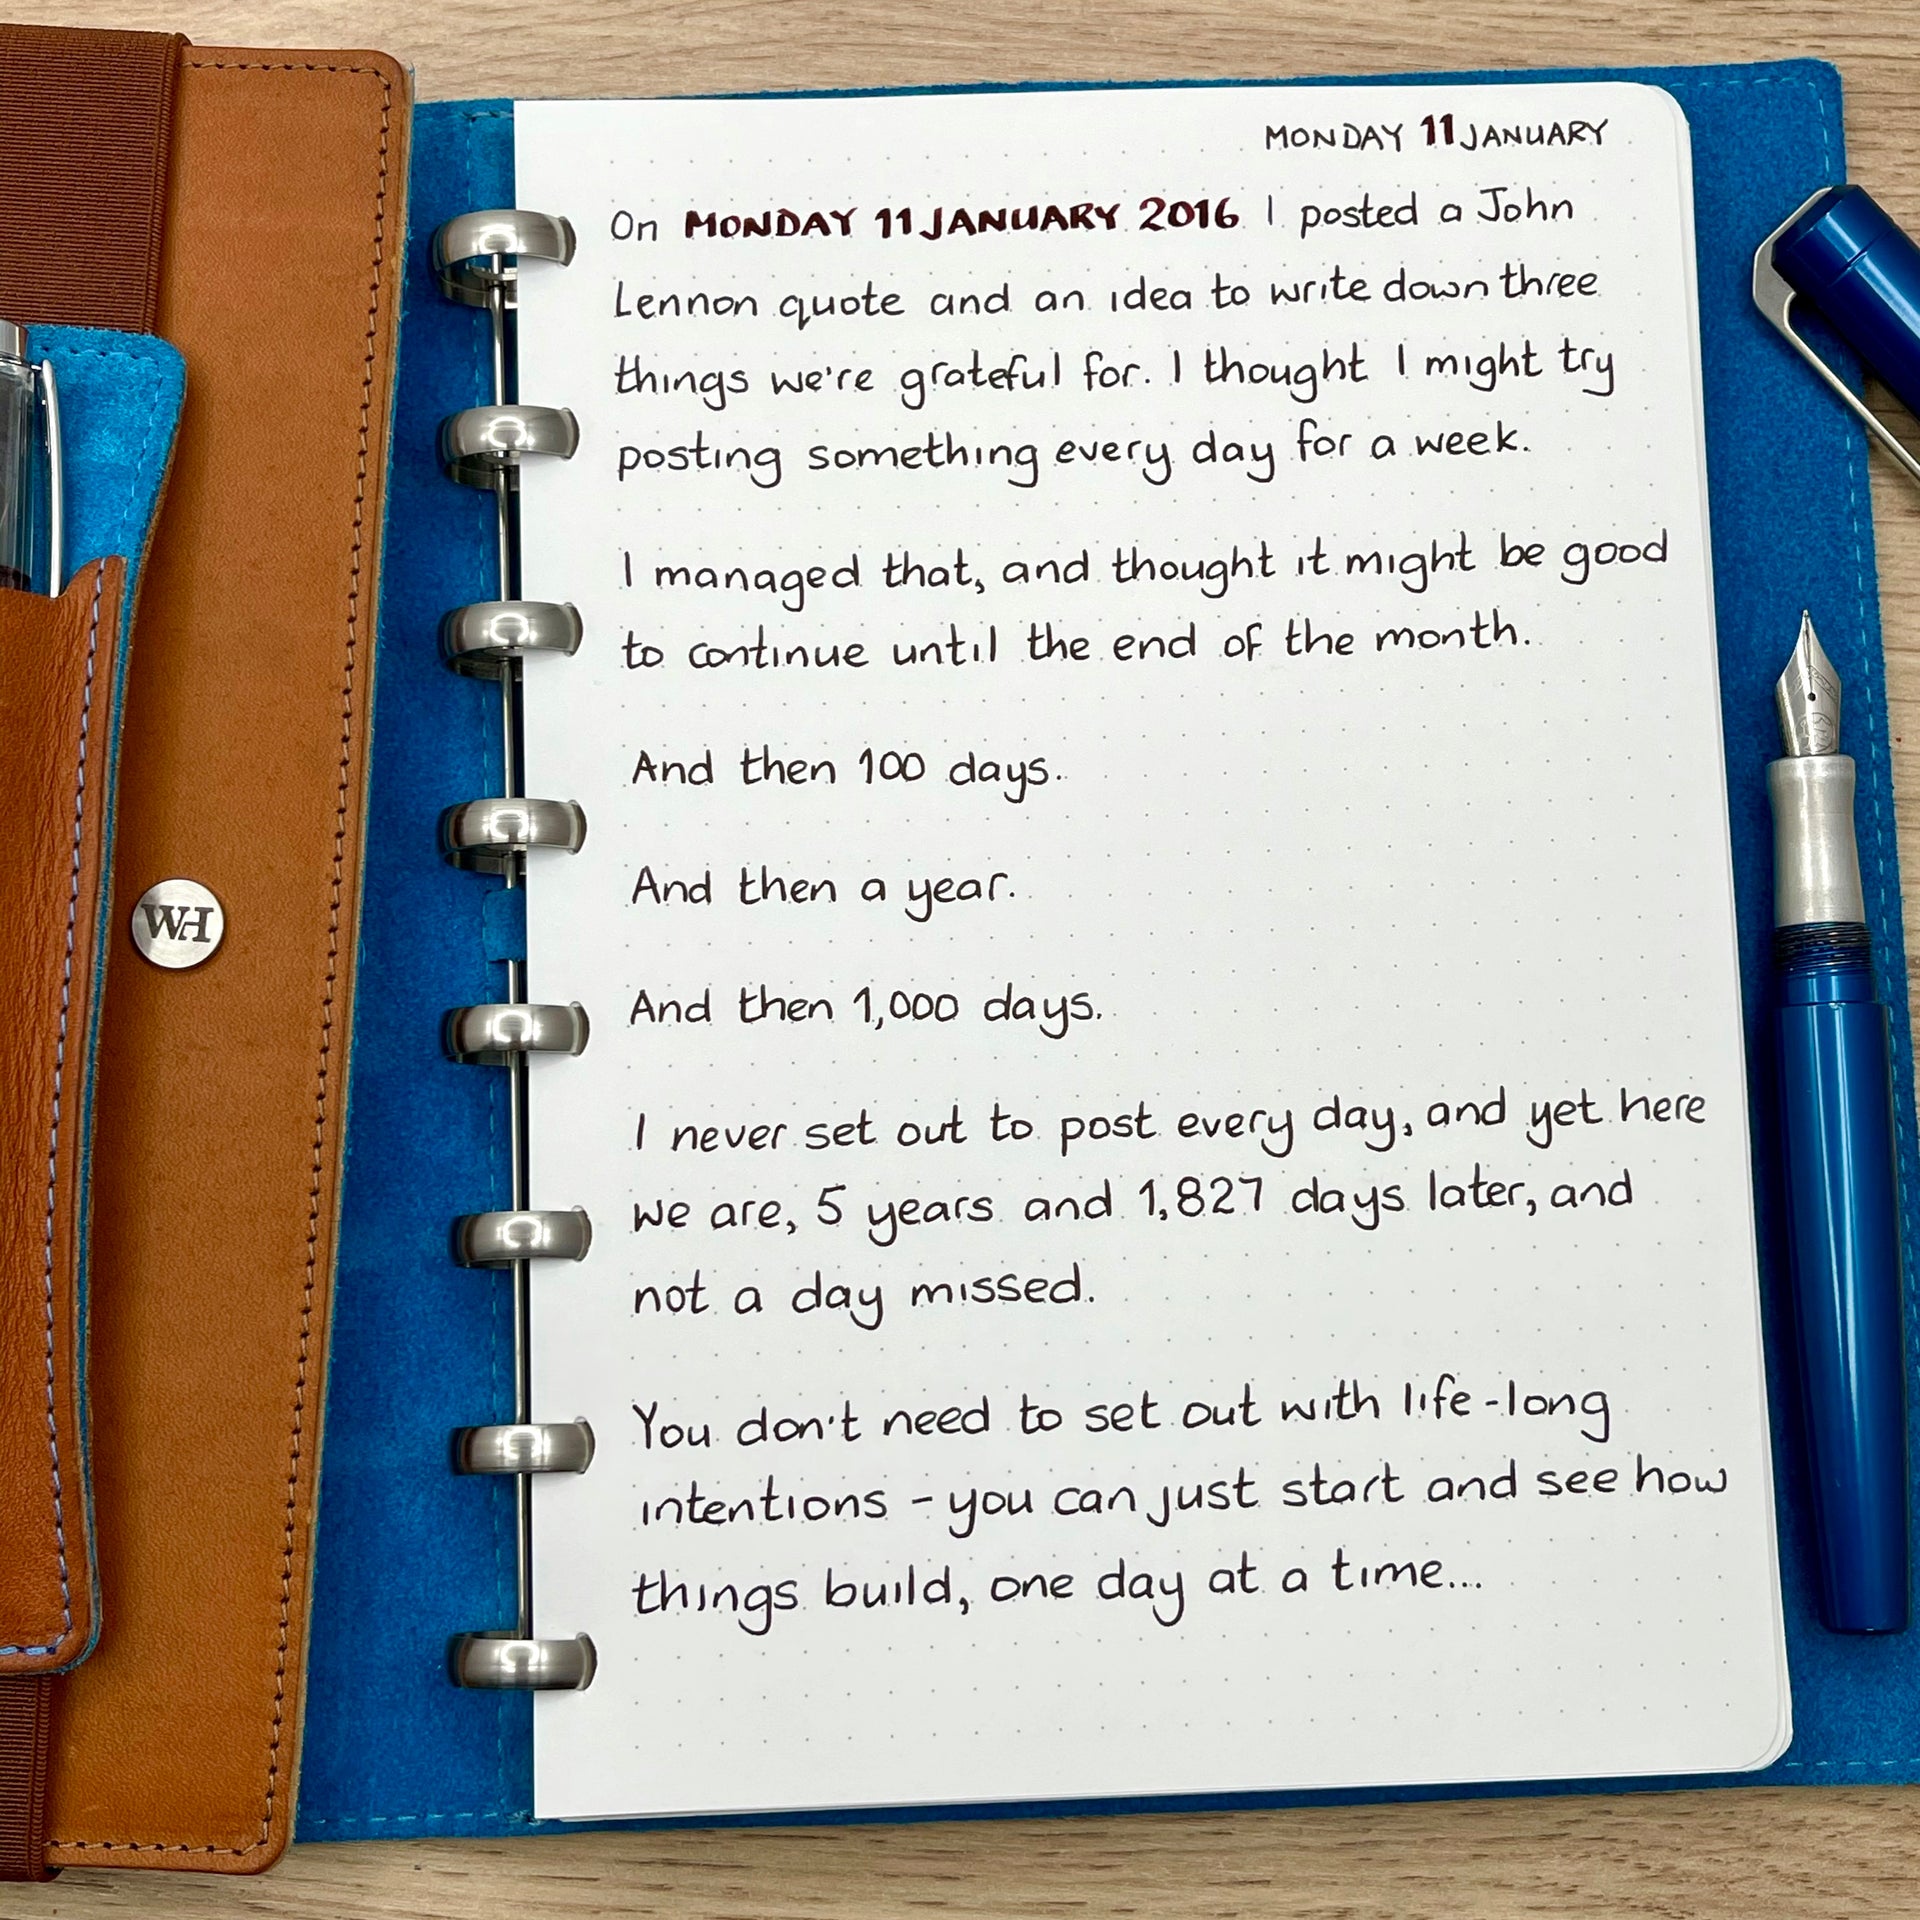 MONDAY 11 JANUARY
On MONDAY 11 JANUARY 2016 I posted a John
Lennon quote and an idea to write down three
things we're grateful for. I thought I might try
posting something every day for a week.
I managed that, and thought it might be good
to continue until the end of the month.
And then 100 days.
And then a year.
And then 1,000 days.
I never set out to post every day, and yet here
we are, 5 years and 1,827 days later, and
not a day missed.
You don't need to set out with life-long
intentions - you can just start and see how
things build, one day at a time...
WH